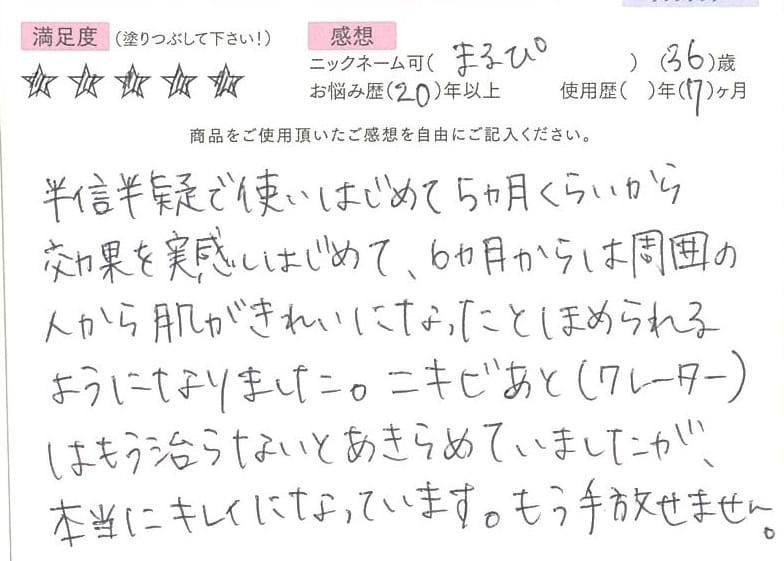 満足度 (塗りつぶして下さい!) 感想
ニックネーム可( まるぴ ) (36)歳
☆☆☆☆☆ お悩み歴(20)年以上 使用歴( )年(17)ヶ月
商品をご使用頂いたご感想を自由にご記入ください。
半信半疑で使いはじめて5ヵ月くらいから
効果を実感しはじめて、6ヵ月からは周囲の
人から肌がきれいになったとほめられる
ようになりました。ニキビあと(クレーター)
はもう治らないとあきらめていましたが、
本当にキレイになっています。もう手放せません。